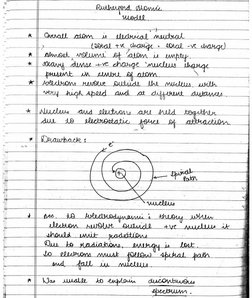 Rutherford Atomic
model
* Overall atom is electrical neutral
(total +ve charge = total -ve charge)
* Almost volume of atom is empty.
* Heavy dense +ve charge nucleus charge
present in centre of atom
* Electron revolve outside the nucleus with
very high speed and at different distances.
* Nucleus and electron are held together
due to electrostatic force of attraction
* Drawback:
e-
+
spiral
Path
nucleus
* acc. to electrodynamic's theory when
electron revolve outside +ve nucleus it
should emit radiations
Due to radiations, energy is lost.
So electron must follow spiral path
and fall in nucleus.
* Was unable to explain discontinuous
spectrum.